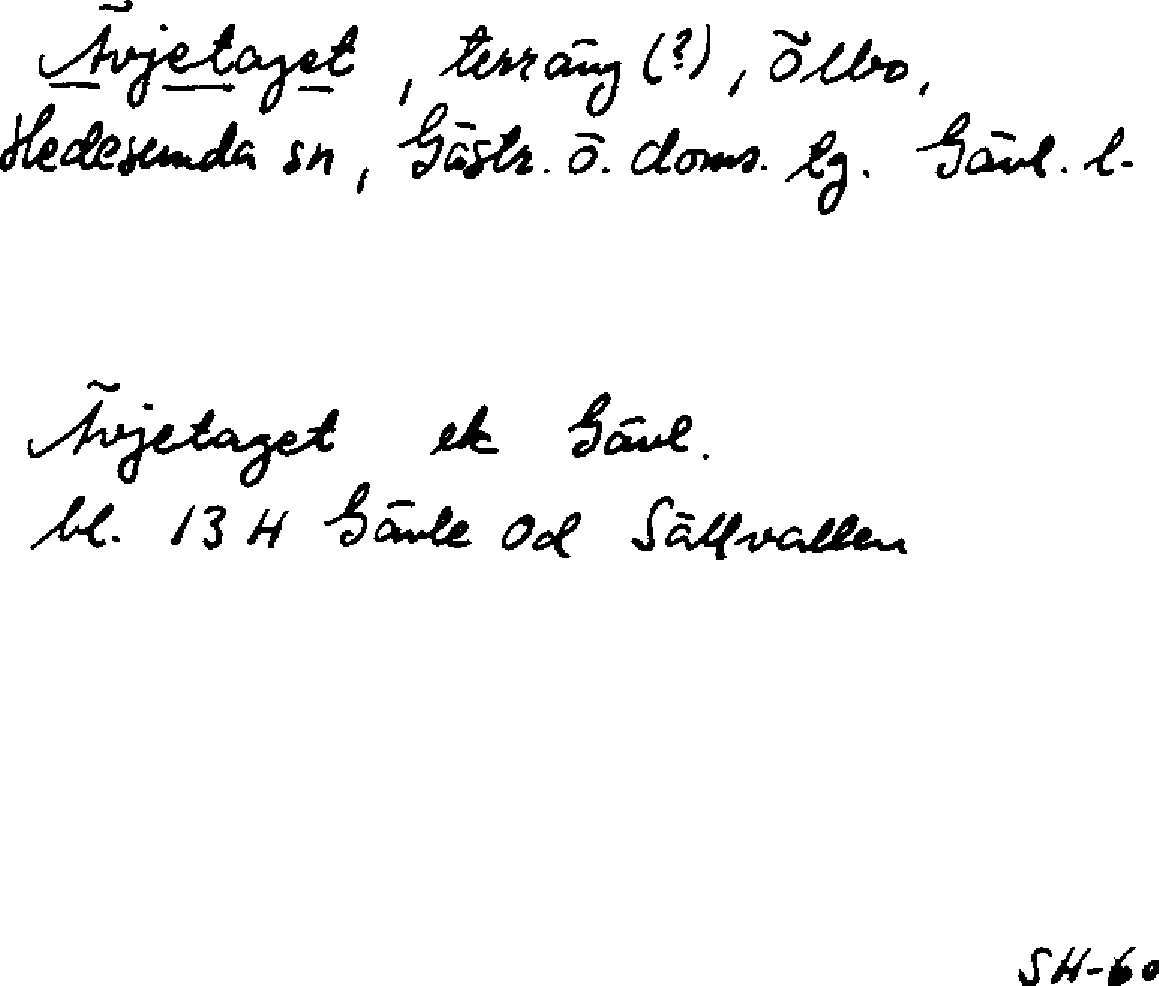 Ävjetaget, terräng (?), Ölbo,
Hedesunda sn, Gästr. ö. doms. tg. Gävl. l.
Ävjetaget ek Gävl.
bl. 13 H Gävle 0d Sällvallen
SH-60